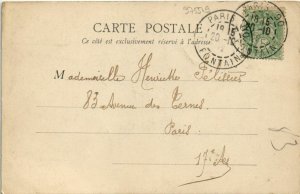 CARTE POSTALE
Ce côté est exclusivement réservé à l'adresse
PARIS
FONTAINE
Mademoiselle Henriette
83 Avenue des Ternes
Paris
17e